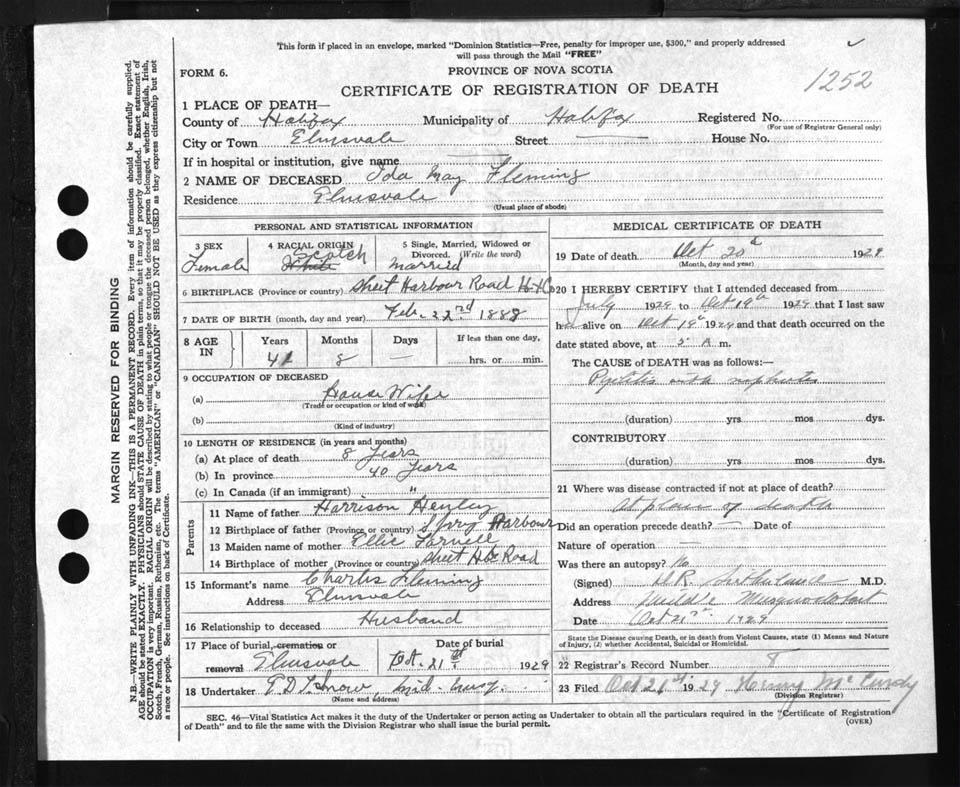 This form if placed in an envelope, marked "Dominion Statistics—Free, penalty for improper use, $300," and properly addressed
will pass through the Mail "FREE"
FORM 6.
PROVINCE OF NOVA SCOTIA
1252
CERTIFICATE OF REGISTRATION OF DEATH
1 PLACE OF DEATH—
County of Halifax Municipality of Halifax Registered No.
(For use of Registrar General only)
City or Town Elmsvale Street House No.
If in hospital or institution, give name
2 NAME OF DECEASED Ida May Fleming
Residence Elmsvale
(Usual place of abode)
PERSONAL AND STATISTICAL INFORMATION
3 SEX 4 RACIAL ORIGIN 5 Single, Married, Widowed or
Divorced. (Write the word)
Female White Scotch Married
6 BIRTHPLACE (Province or country) Sheet Harbour Road Hx Co
7 DATE OF BIRTH (month, day and year) Feb. 22nd 1888
8 AGE IN Years Months Days If less than one day,
41 8 — hrs. or min.
9 OCCUPATION OF DECEASED
(a) House Wife
(Trade or occupation or kind of work)
(b)
(Kind of industry)
10 LENGTH OF RESIDENCE (in years and months)
(a) At place of death 8 Years
(b) In province 40 Years
(c) In Canada (if an immigrant) "
Parents
11 Name of father Harrison Henley
12 Birthplace of father (Province or country) Spry Harbour
13 Maiden name of mother Ellie
14 Birthplace of mother (Province or country) Sheet Hbr Road
15 Informant's name Charles Fleming
Address Elmsvale
16 Relationship to deceased Husband
17 Place of burial, cremation or Date of burial
removal Elmsvale Oct. 21st 1929
18 Undertaker T D Snow, Mid. Musq.
(Name and address)
MEDICAL CERTIFICATE OF DEATH
19 Date of death Oct 20th 1929
(Month, day and year)
20 I HEREBY CERTIFY that I attended deceased from
July 1929 to Oct 19th 1929 that I last saw
her alive on Oct 19th 1929 and that death occurred on the
date stated above, at 5 A m.
The CAUSE OF DEATH was as follows:—
Pyelitis with nephritis
(duration) yrs mos dys.
CONTRIBUTORY
(duration) yrs mos dys.
21 Where was disease contracted if not at place of death?
At place of death
Did an operation precede death? — Date of
Nature of operation —
Was there an autopsy? No
(Signed) M.D.
Address Middle Musquodoboit
Date Oct 21st 1929
State the Disease causing Death, or in death from Violent Causes, state (1) Means and Nature
of Injury, (2) whether Accidental, Suicidal or Homicidal.
22 Registrar's Record Number 8
23 Filed Oct 21st 1929 McCurdy
(Division Registrar)
SEC. 46—Vital Statistics Act makes it the duty of the Undertaker or person acting as Undertaker to obtain all the particulars required in the "Certificate of Registration
of Death" and to file the same with the Division Registrar who shall issue the burial permit.
(OVER)
MARGIN RESERVED FOR BINDING
N.B.—WRITE PLAINLY WITH UNFADING INK—THIS IS A PERMANENT RECORD. Every item of information should be carefully supplied.
AGE should be stated EXACTLY. PHYSICIANS should STATE CAUSE OF DEATH in plain terms, so that it may be properly classified. Exact statement of
OCCUPATION is very important. RACIAL ORIGIN will be described by stating to what people or tongue the deceased person belonged, whether English, Irish,
Scotch, French, German, Russian, Ruthenian, etc. The terms "AMERICAN" or "CANADIAN" SHOULD NOT BE USED as they express citizenship but not
a race or people. See instructions on back of Certificate.